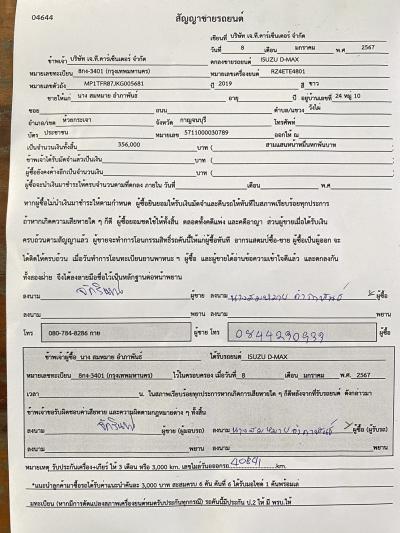 04644
สัญญาซายรถยนต์
เขียนที่ บริษัท เจ.ที.คาร์เซ็นเตอร์ จำกัด
วันที่ 8 เดือน มกราคม พ.ศ. 2567
ข้าพเจ้า บริษัท เจ.ที.คาร์เซ็นเตอร์ จำกัด ตกลงขายรถยนต์ ISUZU D-MAX
หมายเลขทะเบียน 8กง-3401 (กรุงเทพมหานคร) หมายเลขเครื่องยนต์ RZ4ETE4801
หมายเลขตัวถัง MP1TFR87JKG005681 ปี 2019 สี ขาว
ขายให้แก่ นาง สมหมาย อำภาพันธ์ อายุ ปี อยู่บ้านเลขที่ 24 หมู่ 10
ซอย ถนน ตำบล/แขวง วังไผ่
อำเภอ/เขต ห้วยกระเจา จังหวัด กาญจนบุรี โทรศัพท์
บัตร ประชาชน หมายเลข 5711000030789 ออกให้ ณ
เป็นจำนวนเงินทั้งสิ้น 356,000 บาท ( สามแสนห้าหมื่นหกพันบาท )
ข้าพเจ้าได้รับมัดจำแล้วเป็นเงิน บาท ( )
ผู้ซื้อยังคงค้างอีกเป็นจำนวนเงิน บาท ( )
ผู้ซื้อจะนำเงินมาชำระให้ครบจำนวนตามที่ตกลง ภายใน วันที่ เดือน พ.ศ.
หากผู้ซื้อไม่นำเงินมาชำระให้ตามกำหนด ผู้ซื้อยินยอมให้ริบเงินมัดจำและคืนรถให้ทันทีในสภาพเรียบร้อยทุกประการ
ถ้าหากเกิดความเสียหายใด ๆ ก็ดี ผู้ซื้อยอมชดใช้ให้ทั้งสิ้น ตลอดทั้งคดีแพ่ง และคดีอาญา ส่วนผู้ขายเมื่อได้รับเงิน
ครบถ้วนตามสัญญาแล้ว ผู้ขายจะทำการโอนกรรมสิทธิ์รถคันนี้ให้แก่ผู้ซื้อทันที อากรแสตมป์ซื้อ-ขาย ผู้ซื้อเป็นผู้ออก จะ
ได้คิดให้ครบถ้วน เมื่อวันทำการโอนทะเบียนยานพาหนะ ฯ ผู้ซื้อ และผู้ขายได้อ่านข้อความเข้าใจดีแล้ว และตกลงกัน
ทั้งสองฝ่าย จึงได้ลงลายมือชื่อไว้เป็นหลักฐานต่อหน้าพยาน
ลงนาม ผู้ขาย ลงนาม นางสมหมาย อำภาพันธ์ ผู้ซื้อ
ลงนาม พยาน ลงนาม พยาน
โทร 080-784-8286 กาย ผู้ขาย โทร ผู้ซื้อ
ข้าพเจ้าผู้ซื้อ นาง สมหมาย อำภาพันธ์ ได้รับรถยนต์ ISUZU D-MAX
หมายเลขทะเบียน 8กง-3401 (กรุงเทพมหานคร) ไว้ในครอบครอง เมื่อวันที่ 8 เดือน มกราคม พ.ศ. 2567
เวลา น. ในสภาพเรียบร้อยทุกประการหากเกิดการเสียหายใด ๆ ก็ดีหลังจากที่รับรถยนต์ ดังกล่าวมา
ข้าพเจ้าขอรับผิดชอบค่าเสียหาย และความผิดตามกฎหมายต่าง ๆ ทั้งสิ้น
ลงนาม ผู้ขาย (ผู้มอบรถ) ลงนาม นางสมหมาย อำภาพันธ์ ผู้ซื้อ (ผู้รับรถ)
ลงนาม พยาน ลงนาม พยาน
หมายเหตุ รับประกันเครื่อง+เกียร์ ให้ 3 เดือน หรือ 3,000 km. เลขไมล์วันออกรถ 40841 km.
*แนะนำลูกค้ามาซื้อรถได้รับค่าแนะนำคันละ 3,000 บาท สะสมครบ 6 คัน คันที่ 6 ได้รับมอไซด์ 1 คันพร้อมเล่
มทะเบียน (หากมีการดัดแปลงสภาพเครื่องยนต์หมดรับประกันทุกกรณี) รถคันนี้มีประกัน ป.2 ให้ มี พรบ.ให้